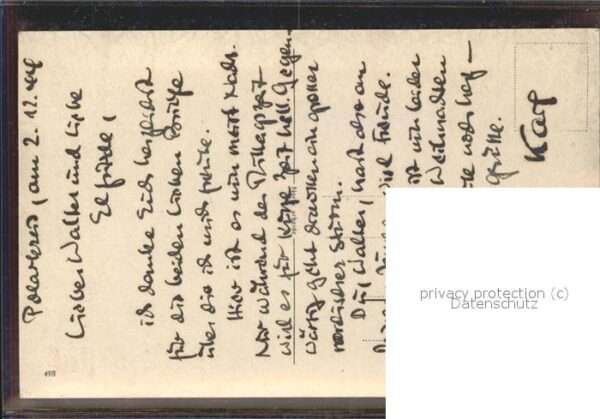 Polarkreis, am 2. 12. 
Lieber Walter und liebe
Elfriede,
ich danke Euch herzlichst
für die beiden lieben Briefe
über die ich mich freute.
Hier ist es nun meist Nacht.
Nur während der Mittagszeit
wird es für kurze Zeit hell. Gegen-
wärtig geht draussen ein grosser
nordischer Sturm.
Du, Walter, hast also an
viel Freude.
ist um beiden
Weihnachten
noch herz-
Grüße.
Karl
privacy protection (c)
Datenschutz